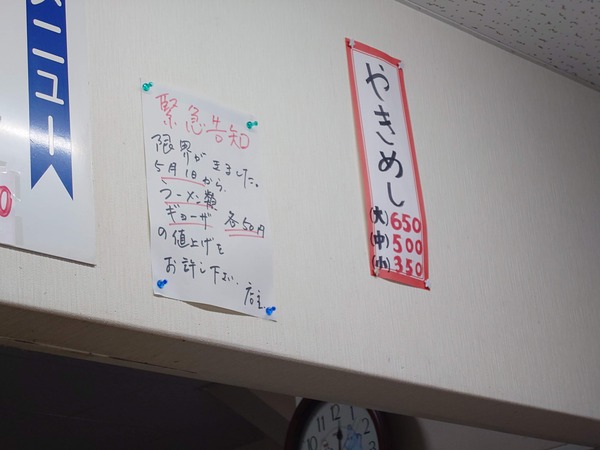 メニュー
緊急告知
限界がきました。
5月1日から、
ラーメン類
ギョーザ 各50円
の値上げを
お許し下さい。
店主
やきめし
(大)650
(中)500
(小)350